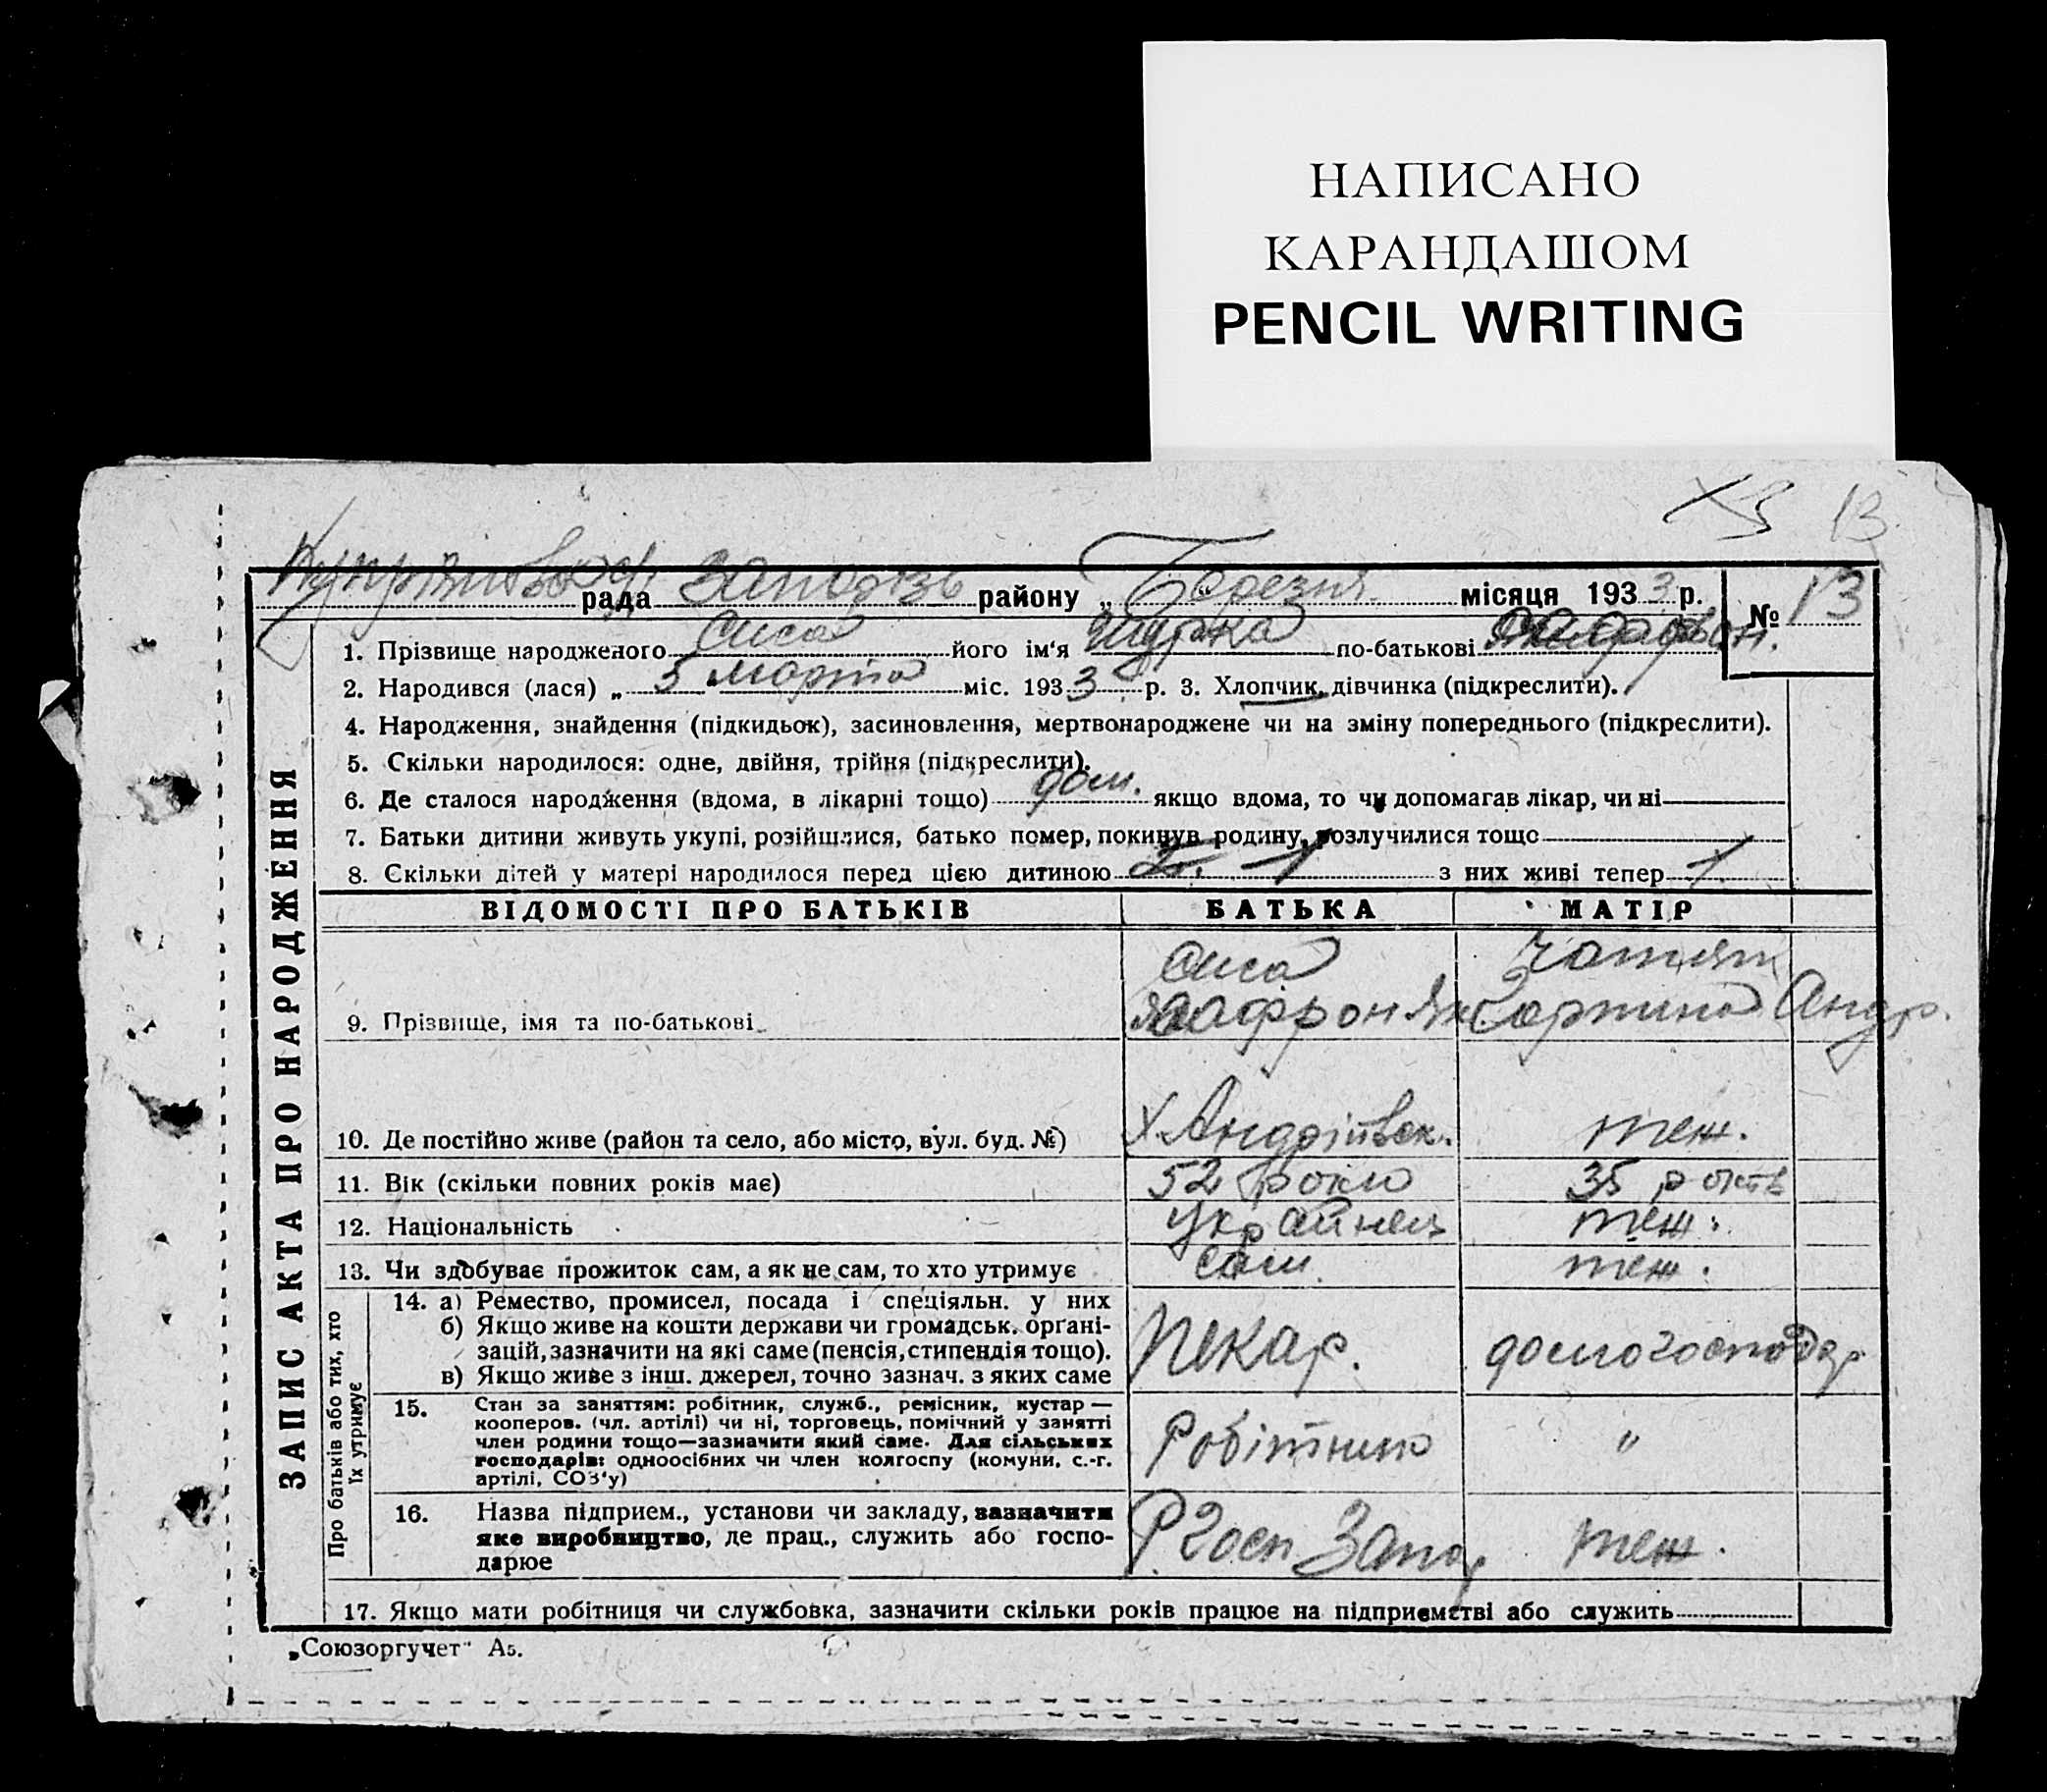 НАПИСАНО
КАРАНДАШОМ
PENCIL WRITING
13
рада району „ Березня місяця 1933 р. № 13
1. Прізвище народженого Сиса його ім'я по-батькові
2. Народився (лася) „ 5 марта міс. 1933 р. 3. Хлопчик, дівчинка (підкреслити).
4. Народження, знайдення (підкидьок), засиновлення, мертвонароджене чи на зміну попереднього (підкреслити).
5. Скільки народилося: одне, двійня, трійня (підкреслити).
6. Де сталося народження (вдома, в лікарні тощо) дом. якщо вдома, то чи допомагав лікар, чи ні
7. Батьки дитини живуть укупі, розійшлися, батько помер, покинув родину, розлучилися тощо
8. Скільки дітей у матері народилося перед цією дитиною 1 з них живі тепер 1
ЗАПИС АКТА ПРО НАРОДЖЕННЯ
ВІДОМОСТІ ПРО БАТЬКІВ БАТЬКА МАТІР
Сиса
9. Прізвище, імя та по-батькові Андр.
10. Де постійно живе (район та село, або місто, вул. буд. №) теж.
11. Вік (скільки повних років має) 52 35
12. Національність Українец теж.
13. Чи здобуває прожиток сам, а як не сам, то хто утримує сам. теж.
Про батьків або тих, хто
їх утримує
14. а) Ремество, промисел, посада і спеціяльн. у них
б) Якщо живе на кошти держави чи громадськ. органі-
зацій, зазначити на які саме (пенсія, стипендія тощо).
в) Якщо живе з інш. джерел, точно зазнач. з яких саме
пекар. домогосподар
15. Стан за заняттям: робітник, служб., ремісник, кустар —
кооперов. (чл. артілі) чи ні, торговець, помічний у занятті
член родини тощо—зазначити який саме. Для сільських
господарів: одноосібних чи член колгоспу (комуни, с.-г.
артілі, СОЗ'у)
Робітник "
16. Назва підприєм., установи чи закладу, зазначити
яке виробництво, де прац., служить або госпо-
дарює
Госп Запор теж.
17. Якщо мати робітниця чи службовка, зазначити скільки років працює на підприємстві або служить
„Союзоргучет" А5.